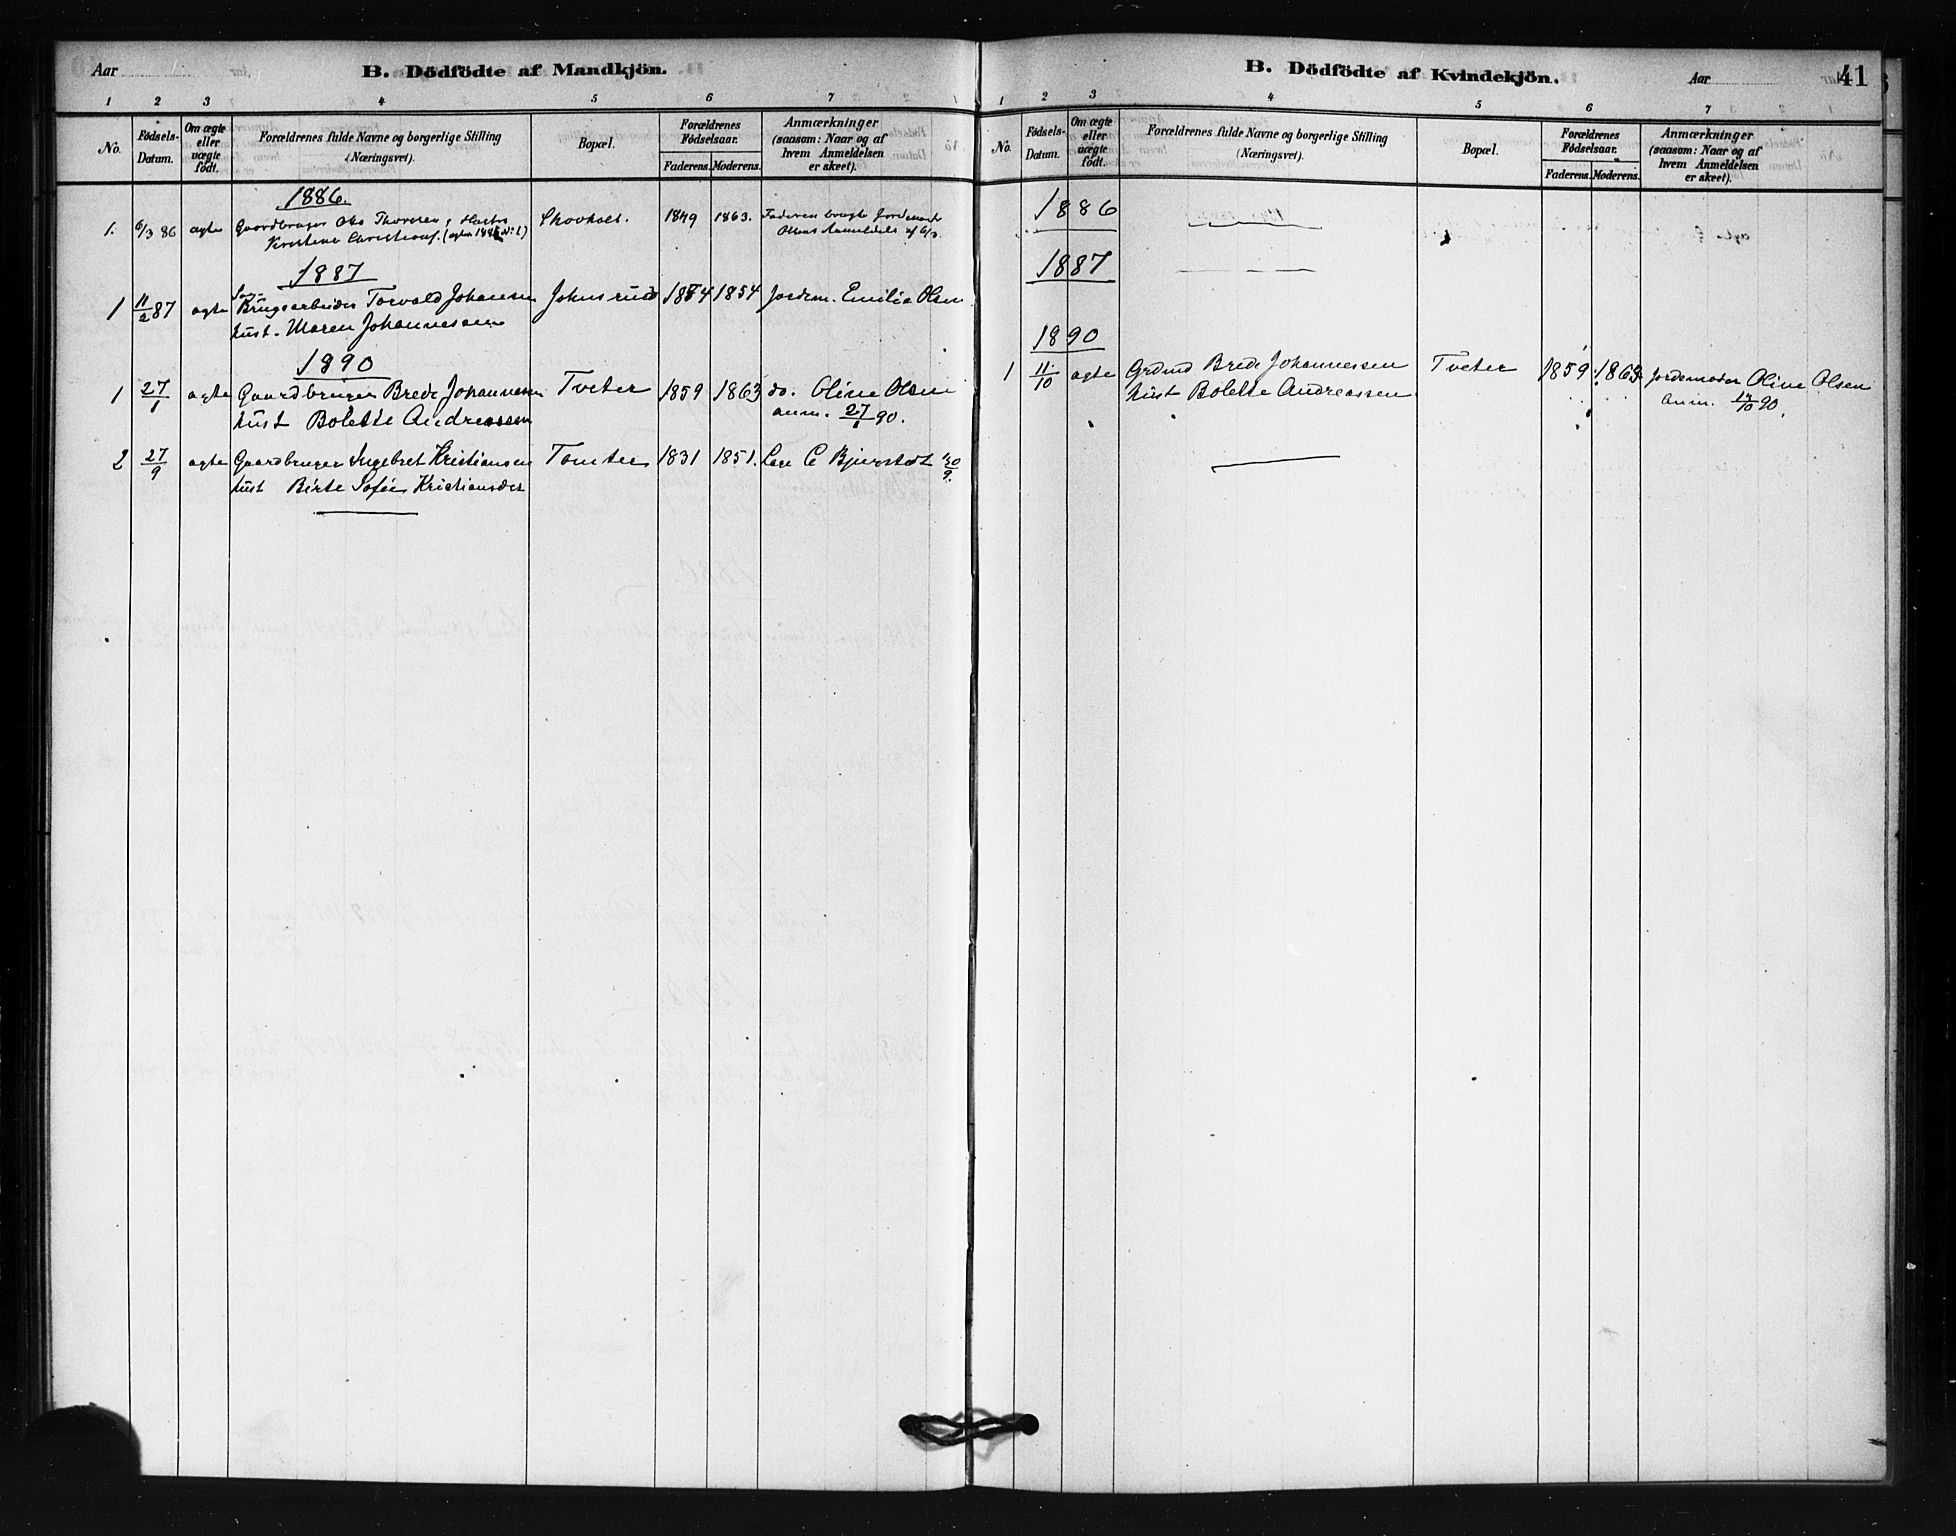 Aar
B. Dödfödte af Mandkjön.
1 2 3 4 5 6 7
No.
Födsels-Datum.
Om ægte eller uægte födt.
Forældrenes fulde Navne og borgerlige Stilling
(Næringsvei).
Bopæl.
Forældrenes Födselsaar.
Faderens. Moderens.
Anmærkninger
(saasom: Naar og af
hvem Anmeldelsen
er skeet).
1886.
1. 6/3 86 ægte Gaardbruger Thoresen, Hustru Skovholt. 1849 1863. Faderen
Kristine af 6/3.
1887
1 11/2 87 ægte Brugsarbeider Torvald Johansen Johnsrud 1854 1854 Jordem. Emilie Olsen
hust. Maren Johannessen
1890
1 27/1 ægte Gaardbruger Brede Johannessen Tveter 1859 1863 do. Oline Olsen
hust Bolette Andreassen anm. 27/1 90.
2 27/9 ægte Gaardbruger Ingebret Kristiansen Tomter 1831 1851. Læge C Bjerstedt 30/9.
hust Birte Sofie Kristiansdtr
B. Dödfödte af Kvindekjön.
Aar
41
1 2 3 4 5 6 7
No.
Födsels-Datum.
Om ægte eller uægte födt.
Forældrenes fulde Navne og borgerlige Stilling
(Næringsvei).
Bopæl.
Forældrenes Födselsaar.
Faderens. Moderens.
Anmærkninger
(saasom: Naar og af
hvem Anmeldelsen
er skeet).
1886
1887
1890
1 11/10 ægte Grdmd Brede Johannessen Tveter 1859 1863 Jordemoder Oline Olsen
hust Bolette Andreassen anm. 12/10 90.